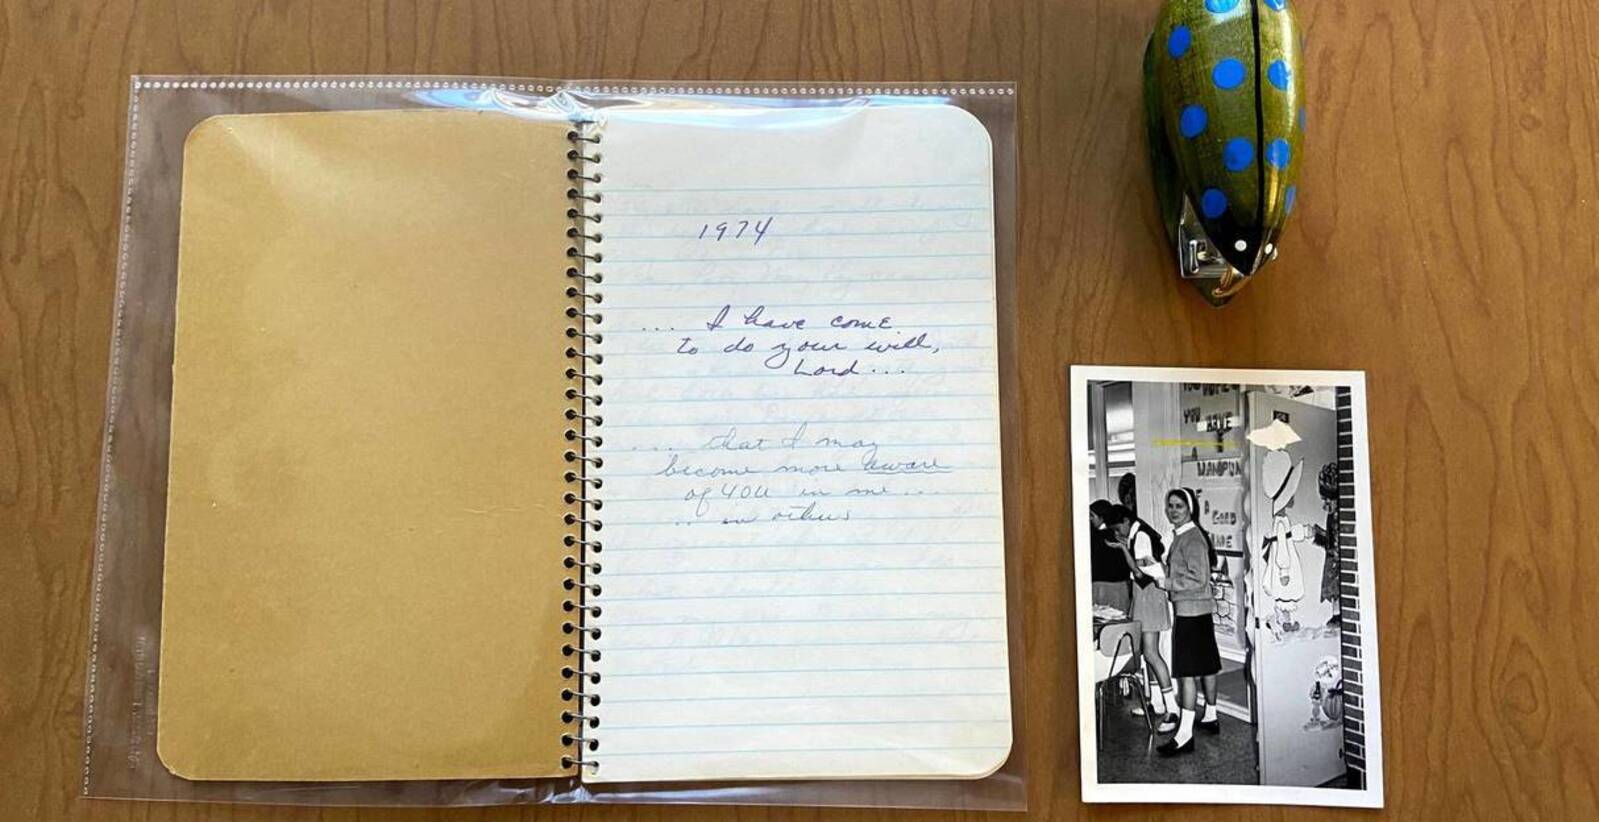 1974
... I have come
to do your will,
Lord...
... that I may
become more aware
of YOU in me...
... in others
YOU
HAVE
A
WAMPUM
A GOOD